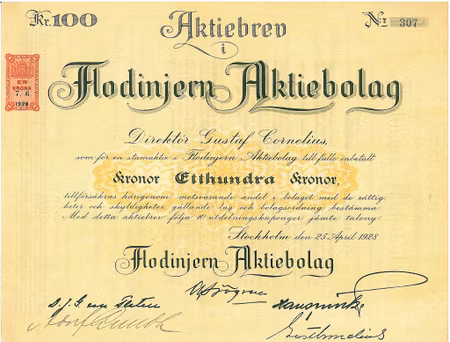 Kr. 100
Aktiebrev
Nr 307
i
Flodinjern Aktiebolag
EN
KRONA
7. 6.
1928
Direktör Gustaf Cornelius,
som för en stamaktie i Flodinjern Aktiebolag till fullo inbetalt
Kronor Etthundra Kronor,
tillförsäkras härigenom motsvarande andel i bolaget med de rättig-
heter och skyldigheter, gällande lag och bolagsordning bestämma.
Med detta aktiebrev följa 10 utdelningskuponger jämte talong.
Stockholm den 25 April 1928.
Flodinjern Aktiebolag